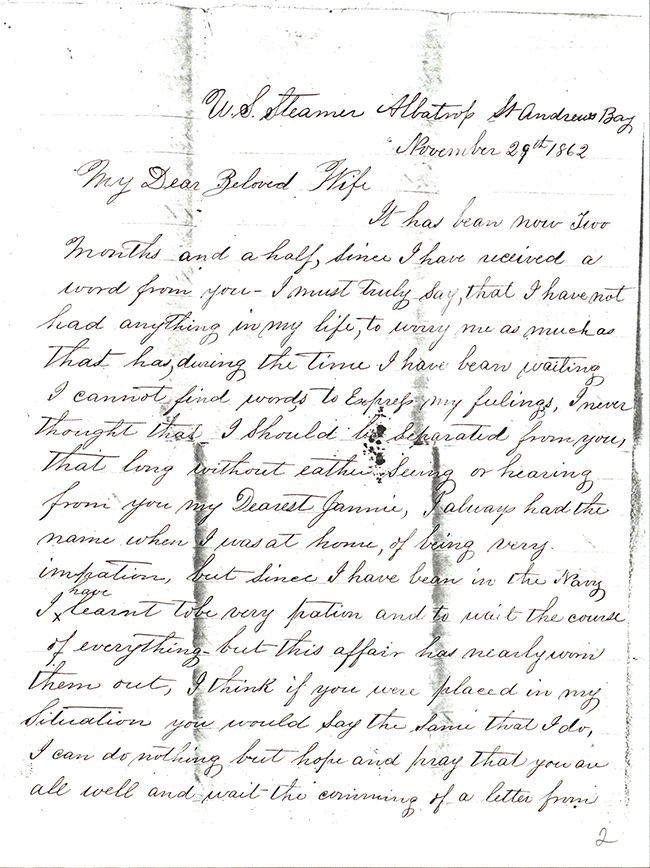 U.S. Steamer Albatross St Andrews Bay
November 29th 1862
My Dear Beloved Wife
It has bean now Two
Months and a half, since I have received a
word from you - I must Truly Say, that I have not
had anything in my life, to worry me as much as
that has, during the time I have bean waiting
I cannot find words to Express my feelings, I never
thought that I Should be Separated from you,
that long without eather Seeing or hearing
from you my Dearest Jannie, I always had the
name when I was at home, of being very
impation, but since I have bean in the Navy
I have learnt tobe very pation and to wait the course
of everything - but this affair has nearly worn
them out, I think if you were placed in my
Situation you would Say the Same that I do,
I can do nothing but hope and pray that you are
all well and wait the comming of a letter from
2